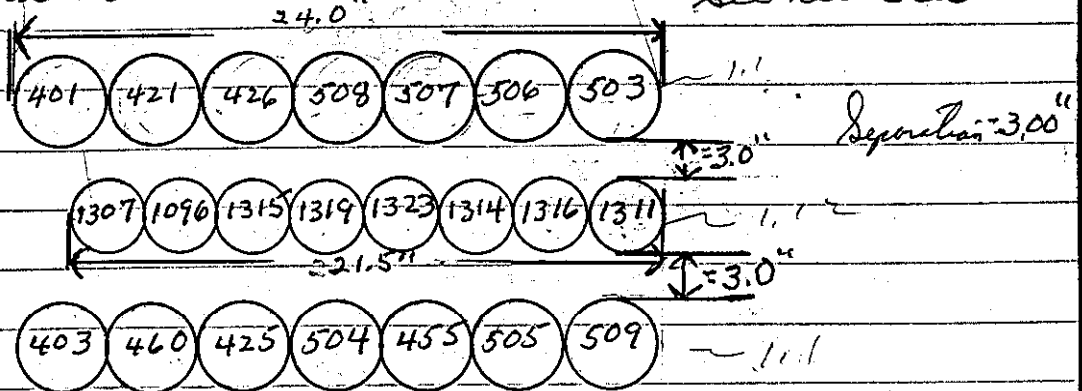 24.0"
401 421 426 508 507 506 503 1.1
Separation = 3.00"
=3.0"
1307 1096 1315 1319 1323 1314 1316 1311
≈21.5"
=3.0"
403 460 425 504 455 505 509 1.1